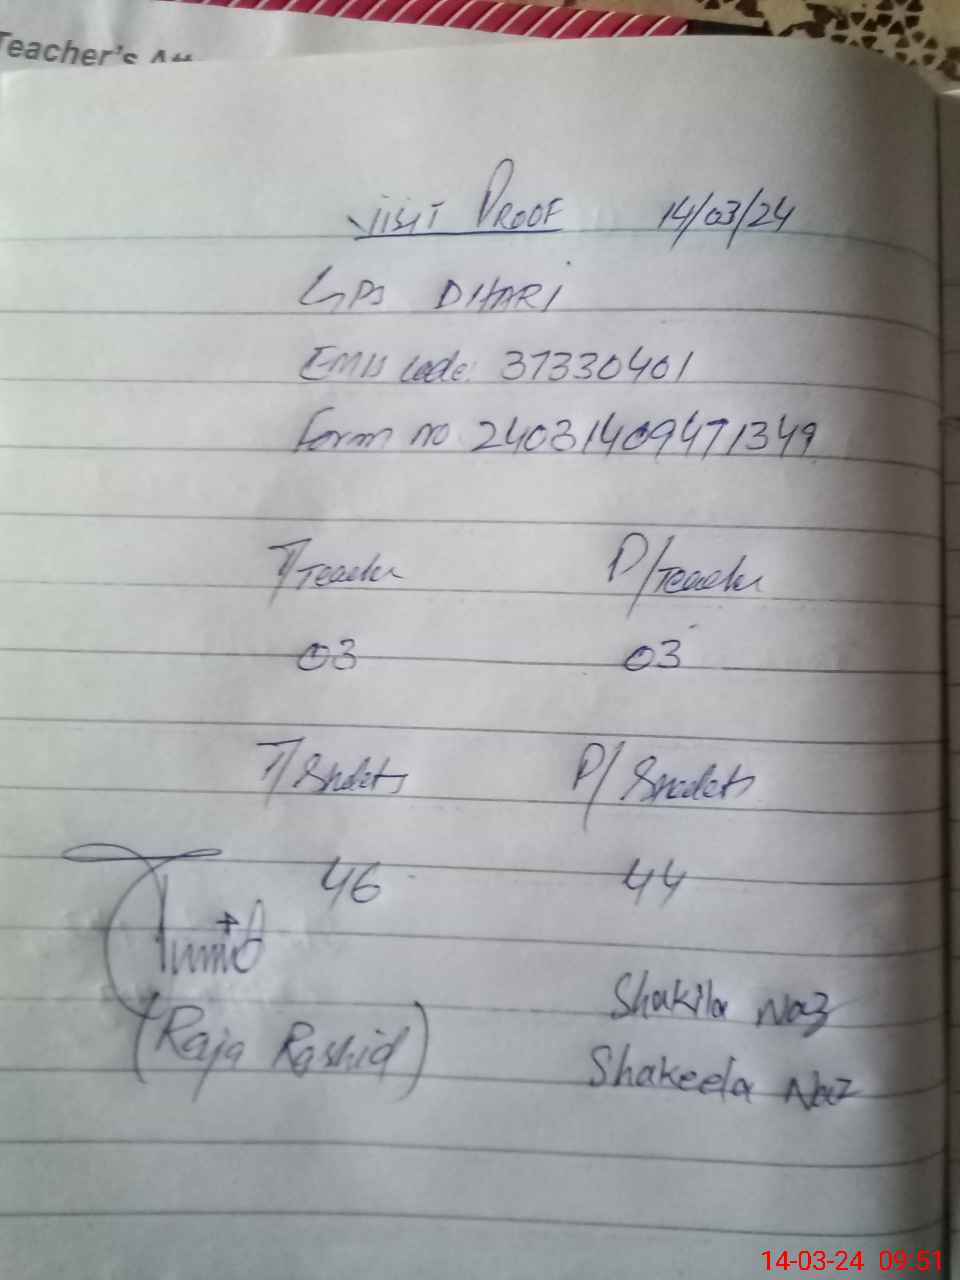 Teacher's
Visit Proof 14/03/24
GPS DHARI
EMIS code: 37330401
Form no 24031409471349
T/Teacher P/Teacher
03 03
T/Students P/Students
46 44
(Raja Rashid)
Shakila Naz
Shakeela Naz
14-03-24 09:51